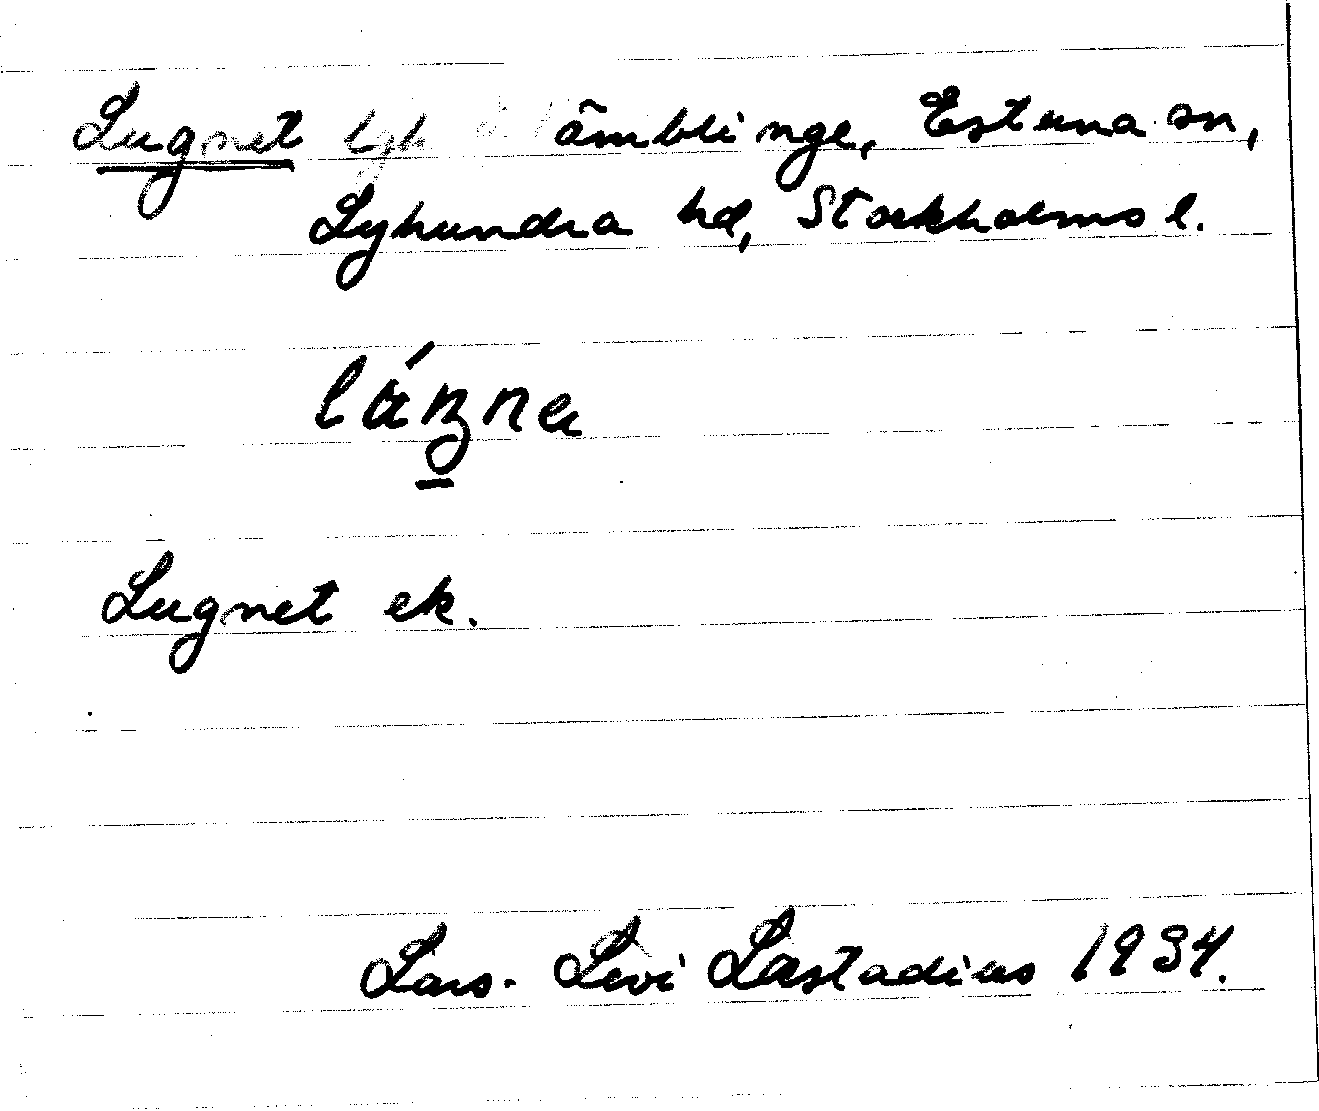 Lugnet lgh ämblinge, Estuna sn,
Lyhundra hd, Stockholms l.
Lugnet ek.
Lars-Levi Læstadius 1934.